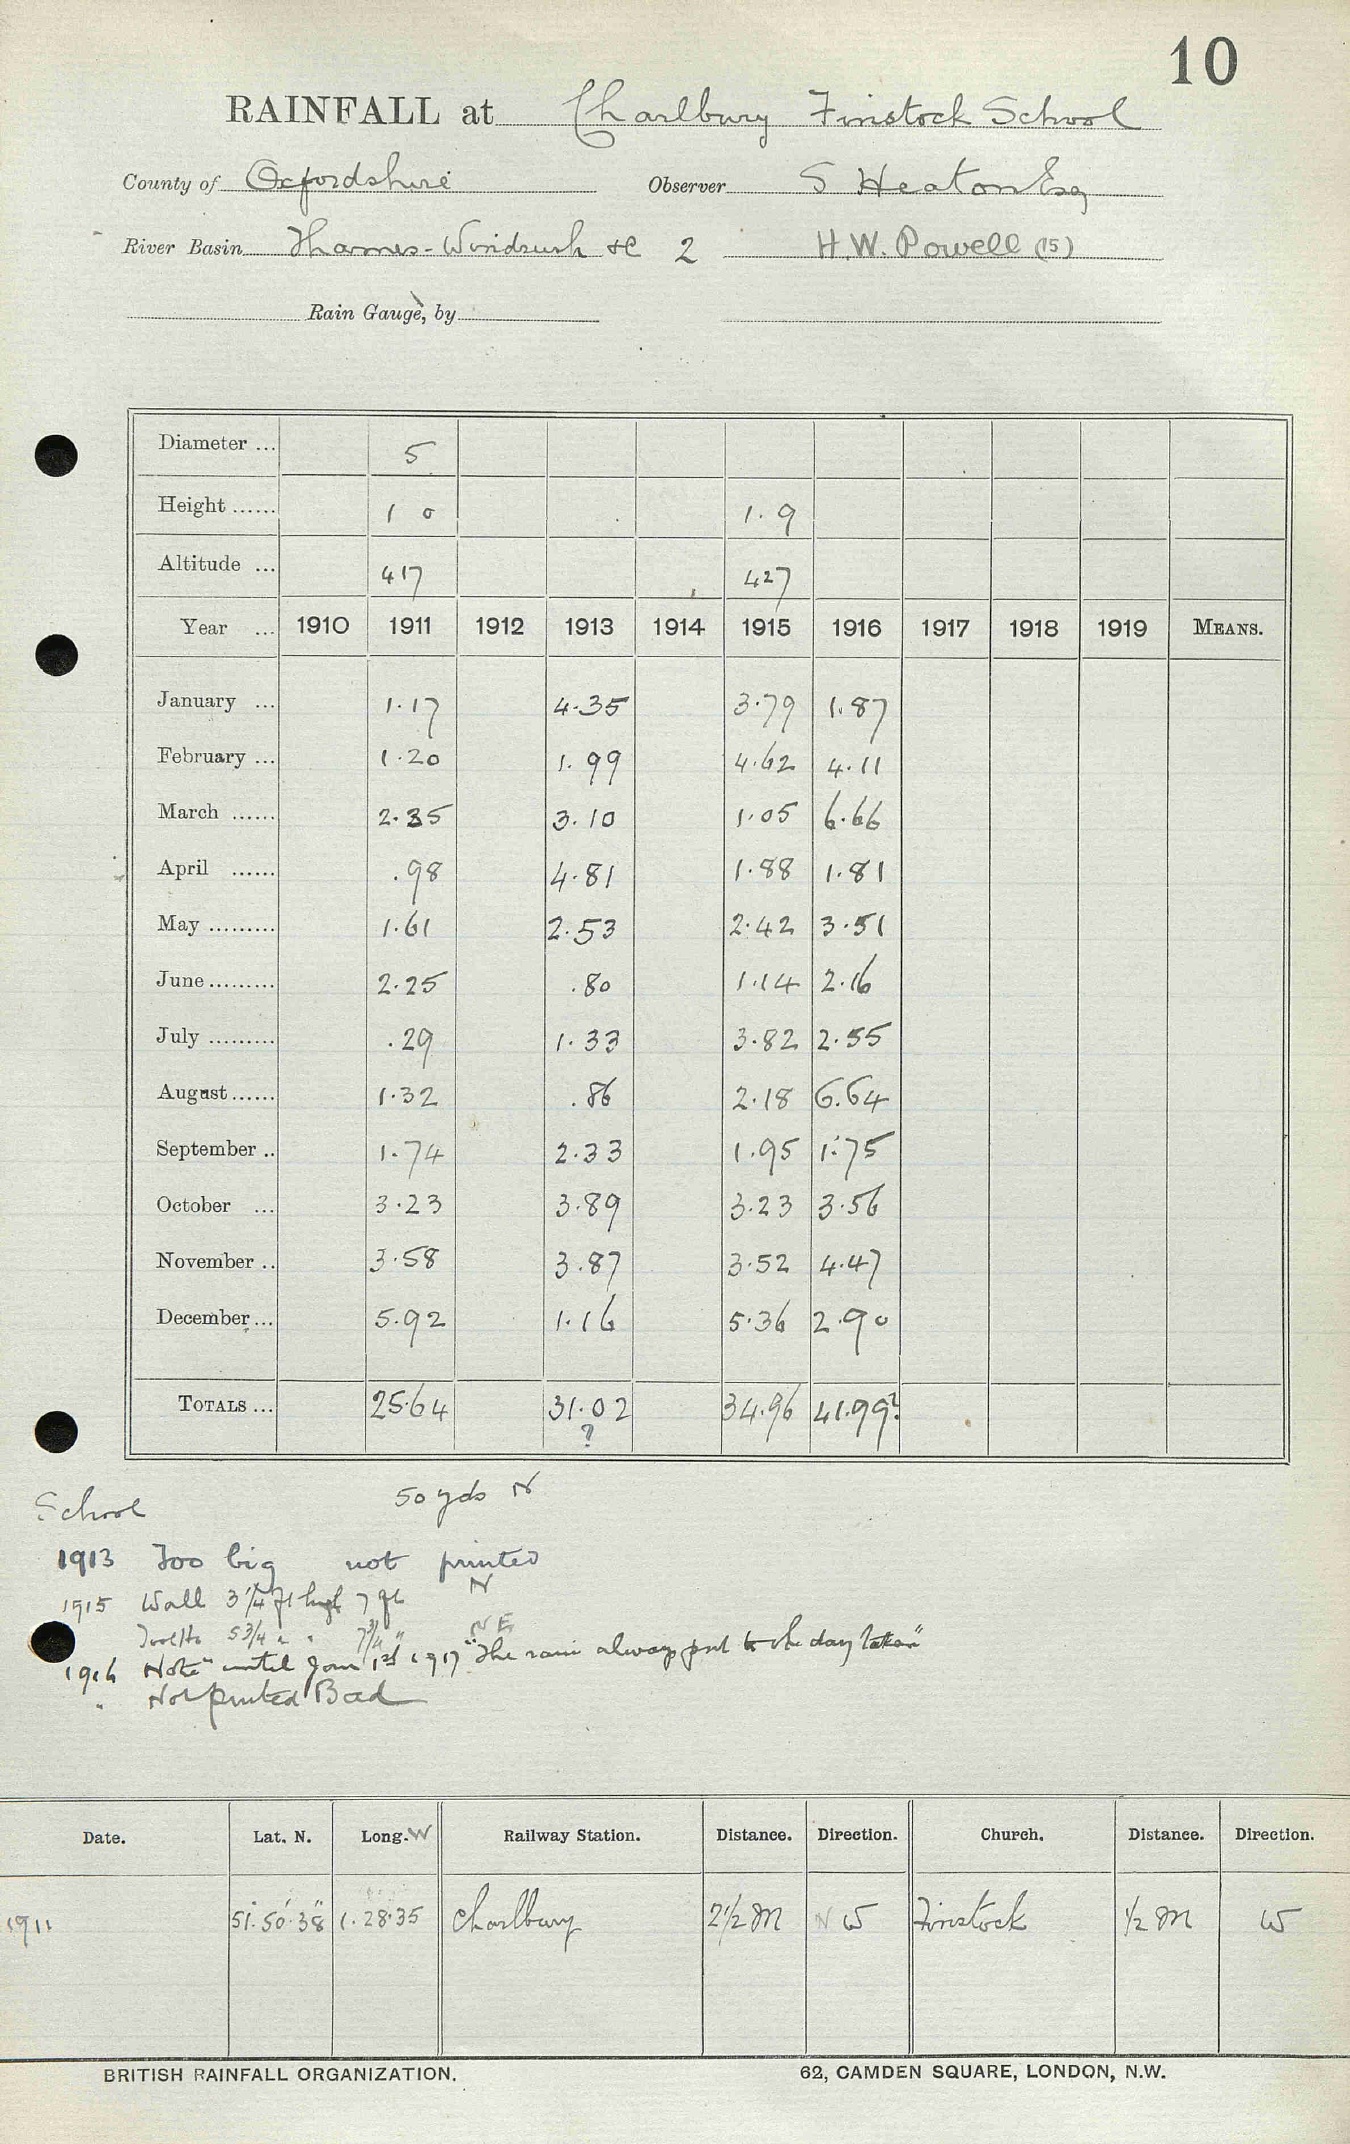 10
RAINFALL at Charlbury Finstock School
County of Oxfordshire Observer S Heaton Esq
River Basin Thames - Windrush &c 2 H.W. Powell (15)
Rain Gauge, by
Diameter ... 5
Height ...... 1 0 1.9
Altitude ... 417 427
Year ... 1910 1911 1912 1913 1914 1915 1916 1917 1918 1919 MEANS.
January ... 1.17 4.35 3.79 1.87
February ... 1.20 1.99 4.62 4.11
March ...... 2.35 3.10 1.05 6.66
April ...... .98 4.81 1.88 1.81
May ......... 1.61 2.53 2.42 3.51
June ......... 2.25 .80 1.14 2.16
July ......... .29 1.33 3.82 2.55
August ...... 1.32 .86 2.18 6.64
September .. 1.74 2.33 1.95 1.75
October ... 3.23 3.89 3.23 3.56
November .. 3.58 3.87 3.52 4.47
December ... 5.92 1.16 5.36 2.90
TOTALS ... 25.64 31.02 34.96 41.99?
?
School 50 yds N
1913 Too big not printed
1915 Wall 3¼ ft high 7 ft N
5¾ " " 7¾ " NE
1916 Note" until Jan 1st 1917 "The rain always put to the day taken"
" Not printed Bad
Date. Lat. N. Long. W Railway Station. Distance. Direction. Church. Distance. Direction.
1911 51.50.38 1.28.35 Charlbury 2½ M N W Finstock ½ M W
BRITISH RAINFALL ORGANIZATION. 62, CAMDEN SQUARE, LONDON, N.W.